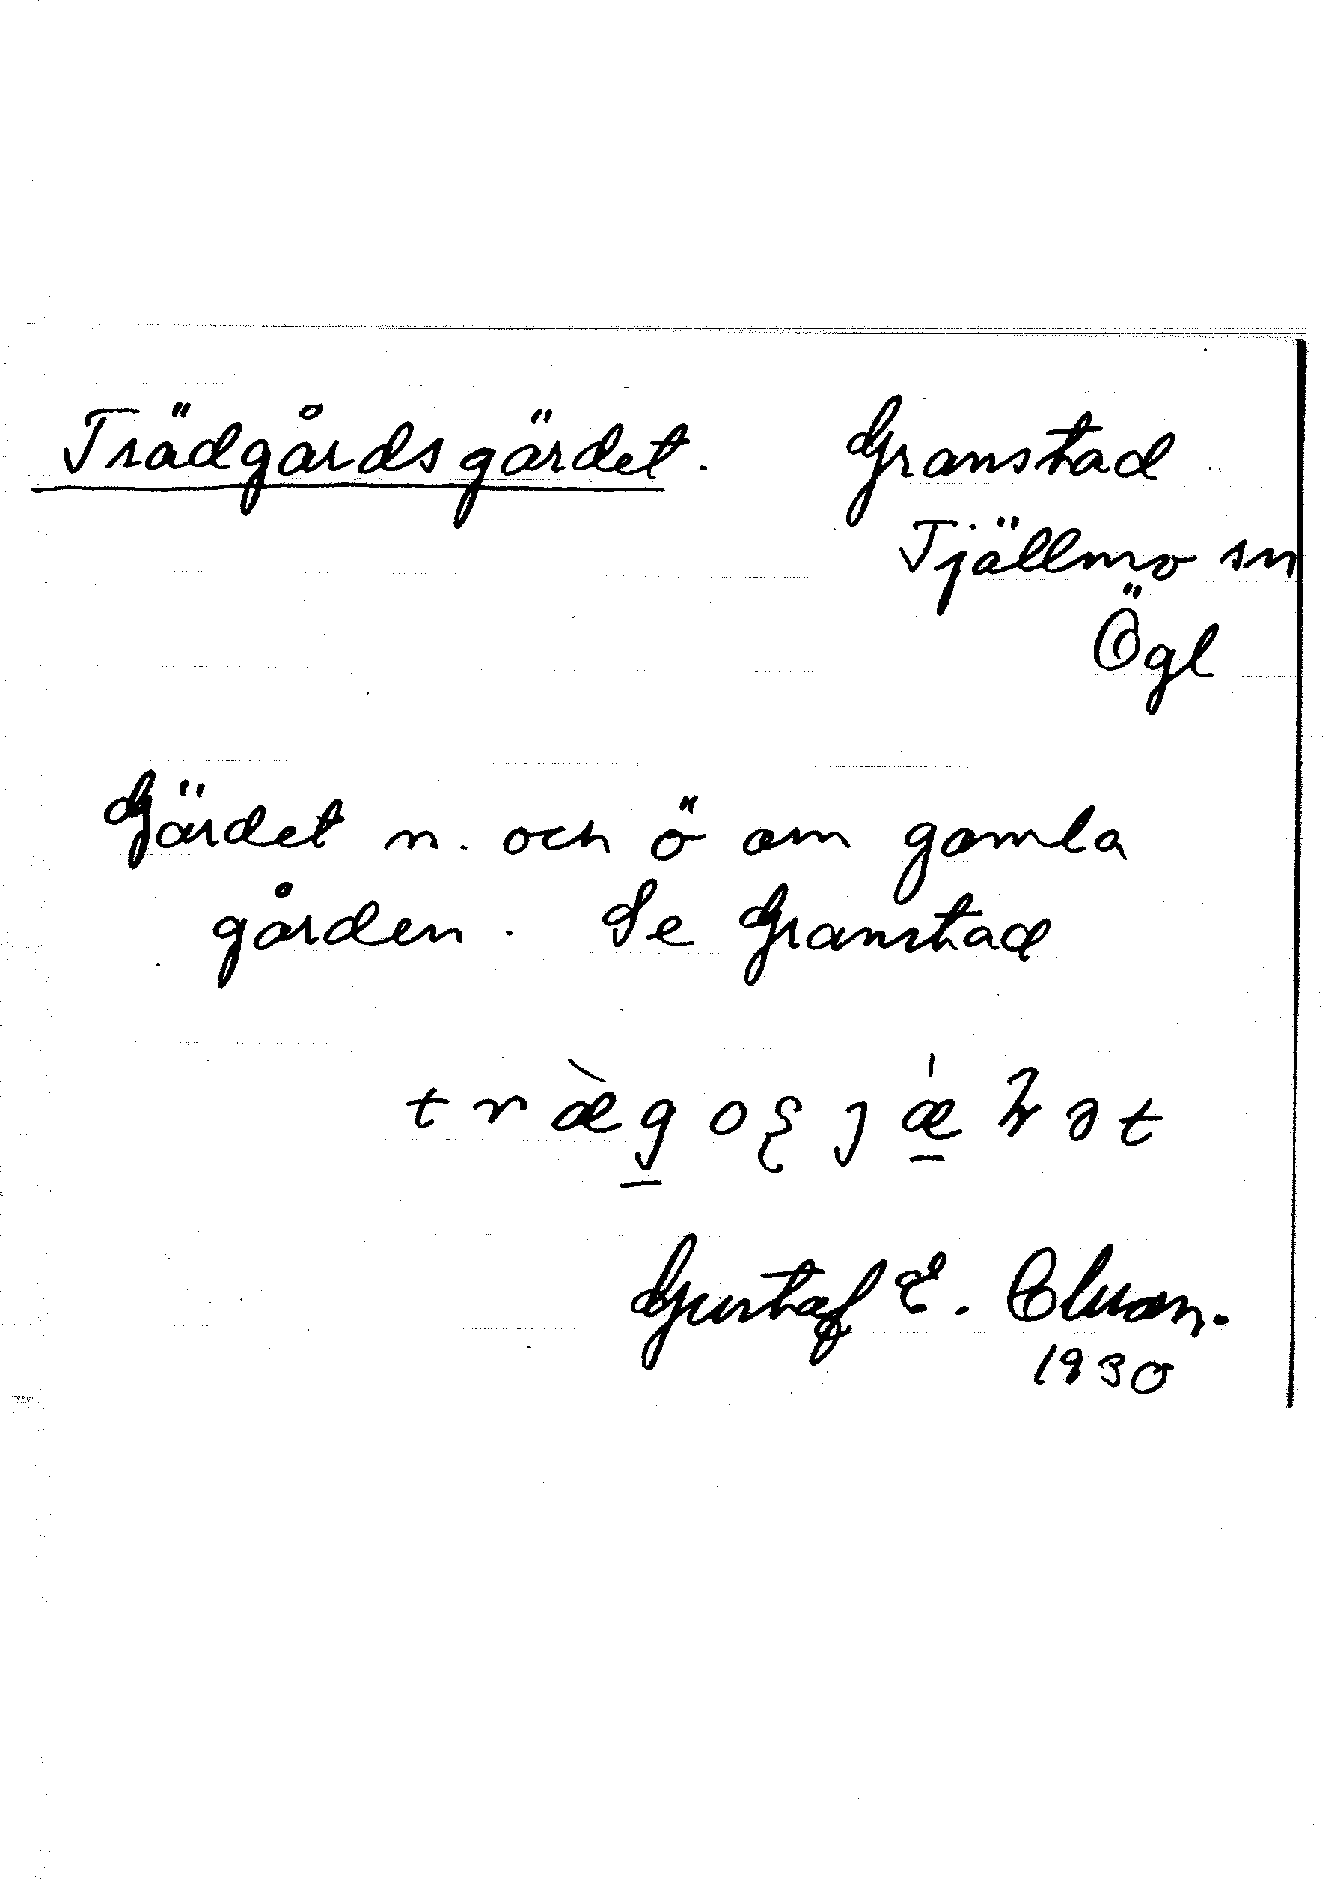 Trädgårdsgärdet. Granstad
Tjällmo sn
Ögl
Gärdet n. och ö om gamla
gården. Se Granstad
Gustaf E.
1930